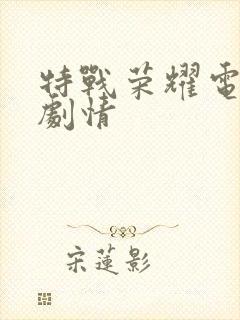 特戰荣耀電
劇情
宋蓮影